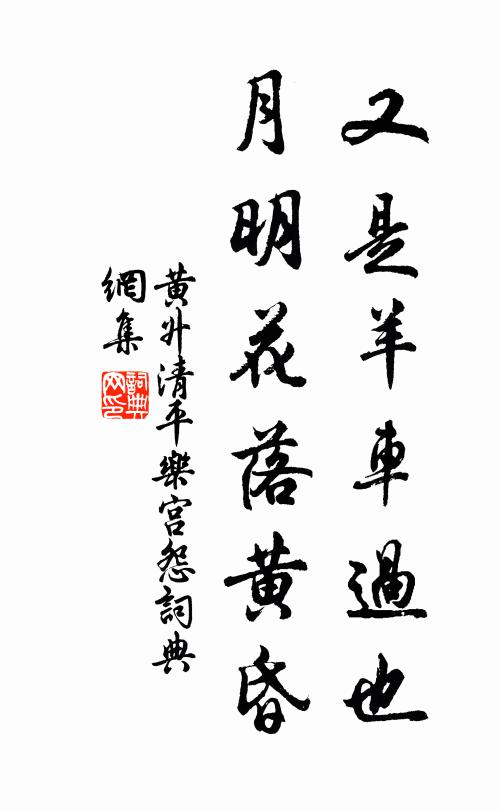 又是羊車過也
月明花落黄昏
黄外清平樂宮怨詞典
網集
詞典
网印